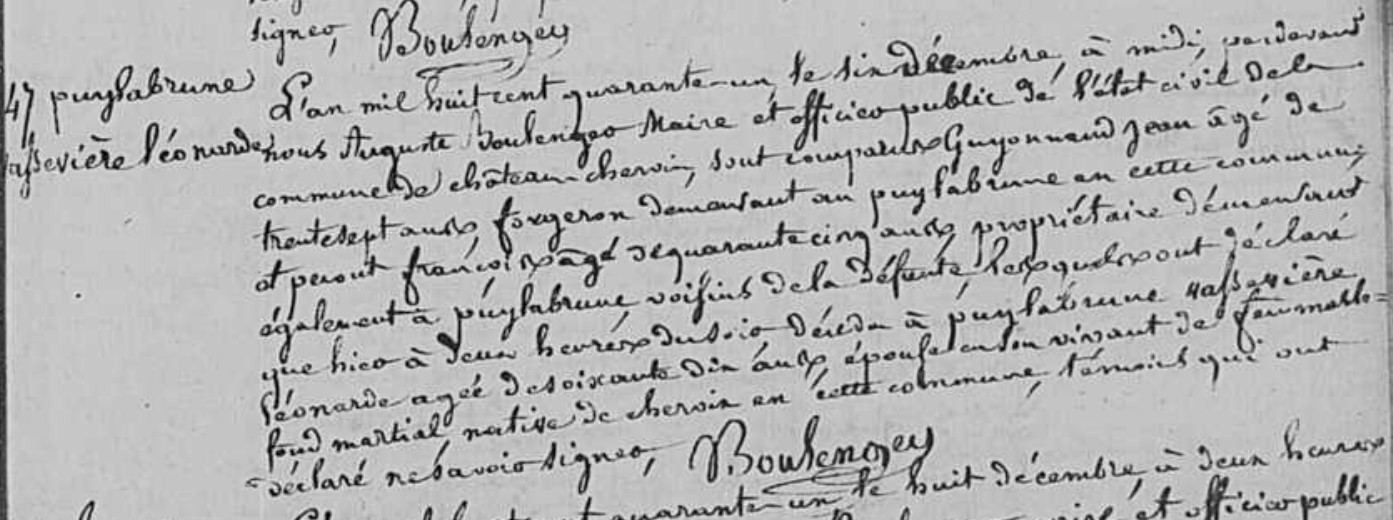 signer, Boulenger
47 puylabrune L'an mil huit cent quarante-un, le six décembre, à midi, pardevant
Vassevière léonarde, nous Auguste Boulenger Maire et officier public de l'état civil de la
commune de château-chervix, sont comparus Guyonnaud Jean âgé de
trentesept ans, forgeron demeurant au puylabrune en cette commune,
et perout françois âgé de quarante cinq ans propriétaire demeurant
également à puylabrune, voisins de la défunte, lesquels ont déclaré
que hier à deux heures du soir décéda à puylabrune vassevière
léonarde agée de soixante dix ans, épouse en son vivant de feu malle=
foud martial, native de chervix en cette commune, témoins qui ont
déclaré ne savoir signer, Boulenger
quarante-un le huit décembre, à deux heures
et officier public